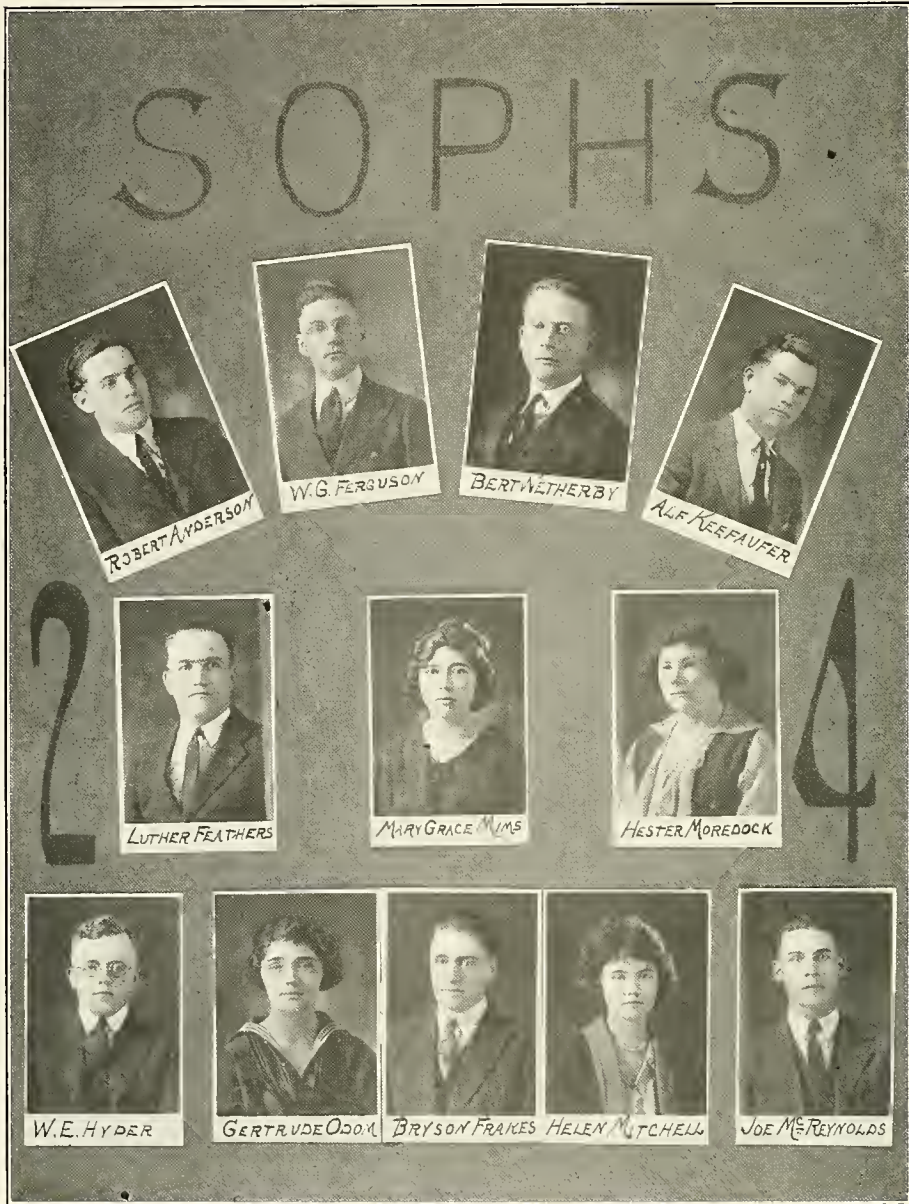 SOPHS
ROBERT ANDERSON
W. G. FERGUSON
BERT NETHERBY
ALF KEEFAUFER
24
LUTHER FEATHERS
MARY GRACE MIMS
HESTER MOREDOCK
W. E. HYDER
GERTRUDE ODOM
BRYSON FRAKES
HELEN MITCHELL
JOE McREYNOLDS